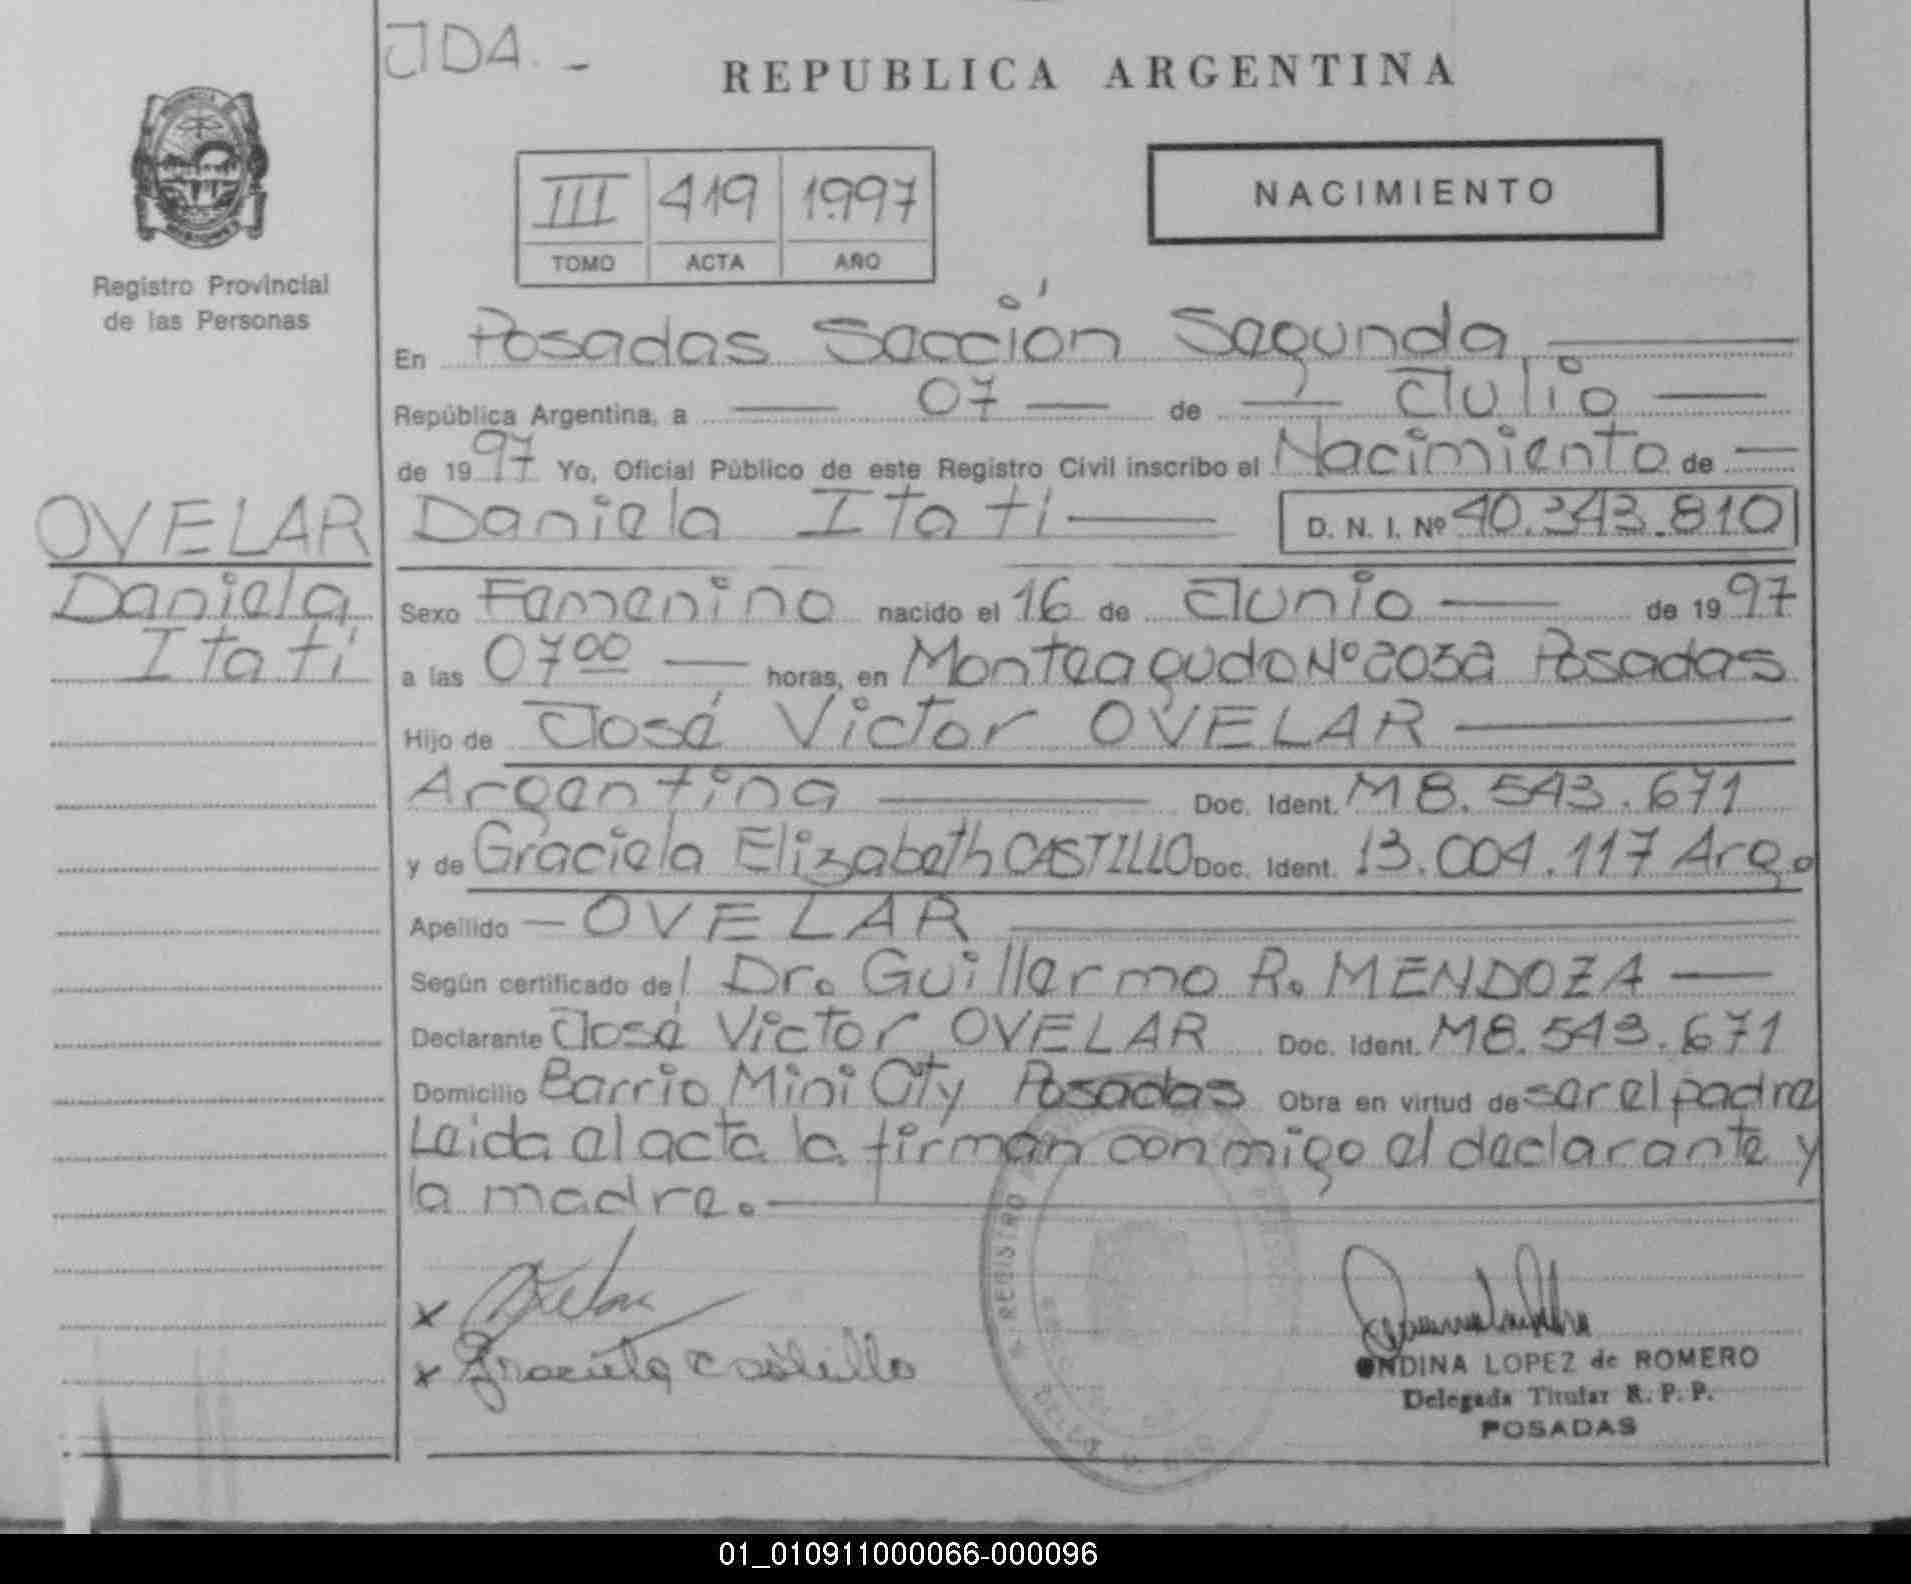 JDA.-
REPUBLICA ARGENTINA
III 419 1.997
TOMO ACTA AÑO
NACIMIENTO
Registro Provincial
de las Personas
En Posadas Sección Segunda
República Argentina, a 07 de Julio
de 1997 Yo, Oficial Público de este Registro Civil inscribo el Nacimiento de
OVELAR
Daniela
Itatí
Daniela Itatí D. N. I. Nº 40.343.810
Sexo Femenino nacido el 16 de Junio de 1997
a las 07 00 horas, en Monteagudo Nº 2032 Posadas
Hijo de José Victor OVELAR
Argentina Doc. Ident. M8.543.671
y de Graciela Elizabeth CASTILLO Doc. Ident. 13.004.117 Arg.
Apellido - OVELAR
Según certificado del Dr. Guillermo R. MENDOZA
Declarante José Victor OVELAR Doc. Ident. M8.543.671
Domicilio Barrio Mini City Posadas Obra en virtud de ser el padre
Leida el acta la firman conmigo el declarante y
la madre.
x Ovelar
x Graciela Castillo
ONDINA LOPEZ de ROMERO
Delegada Titular R. P. P.
POSADAS
01_010911000066-000096